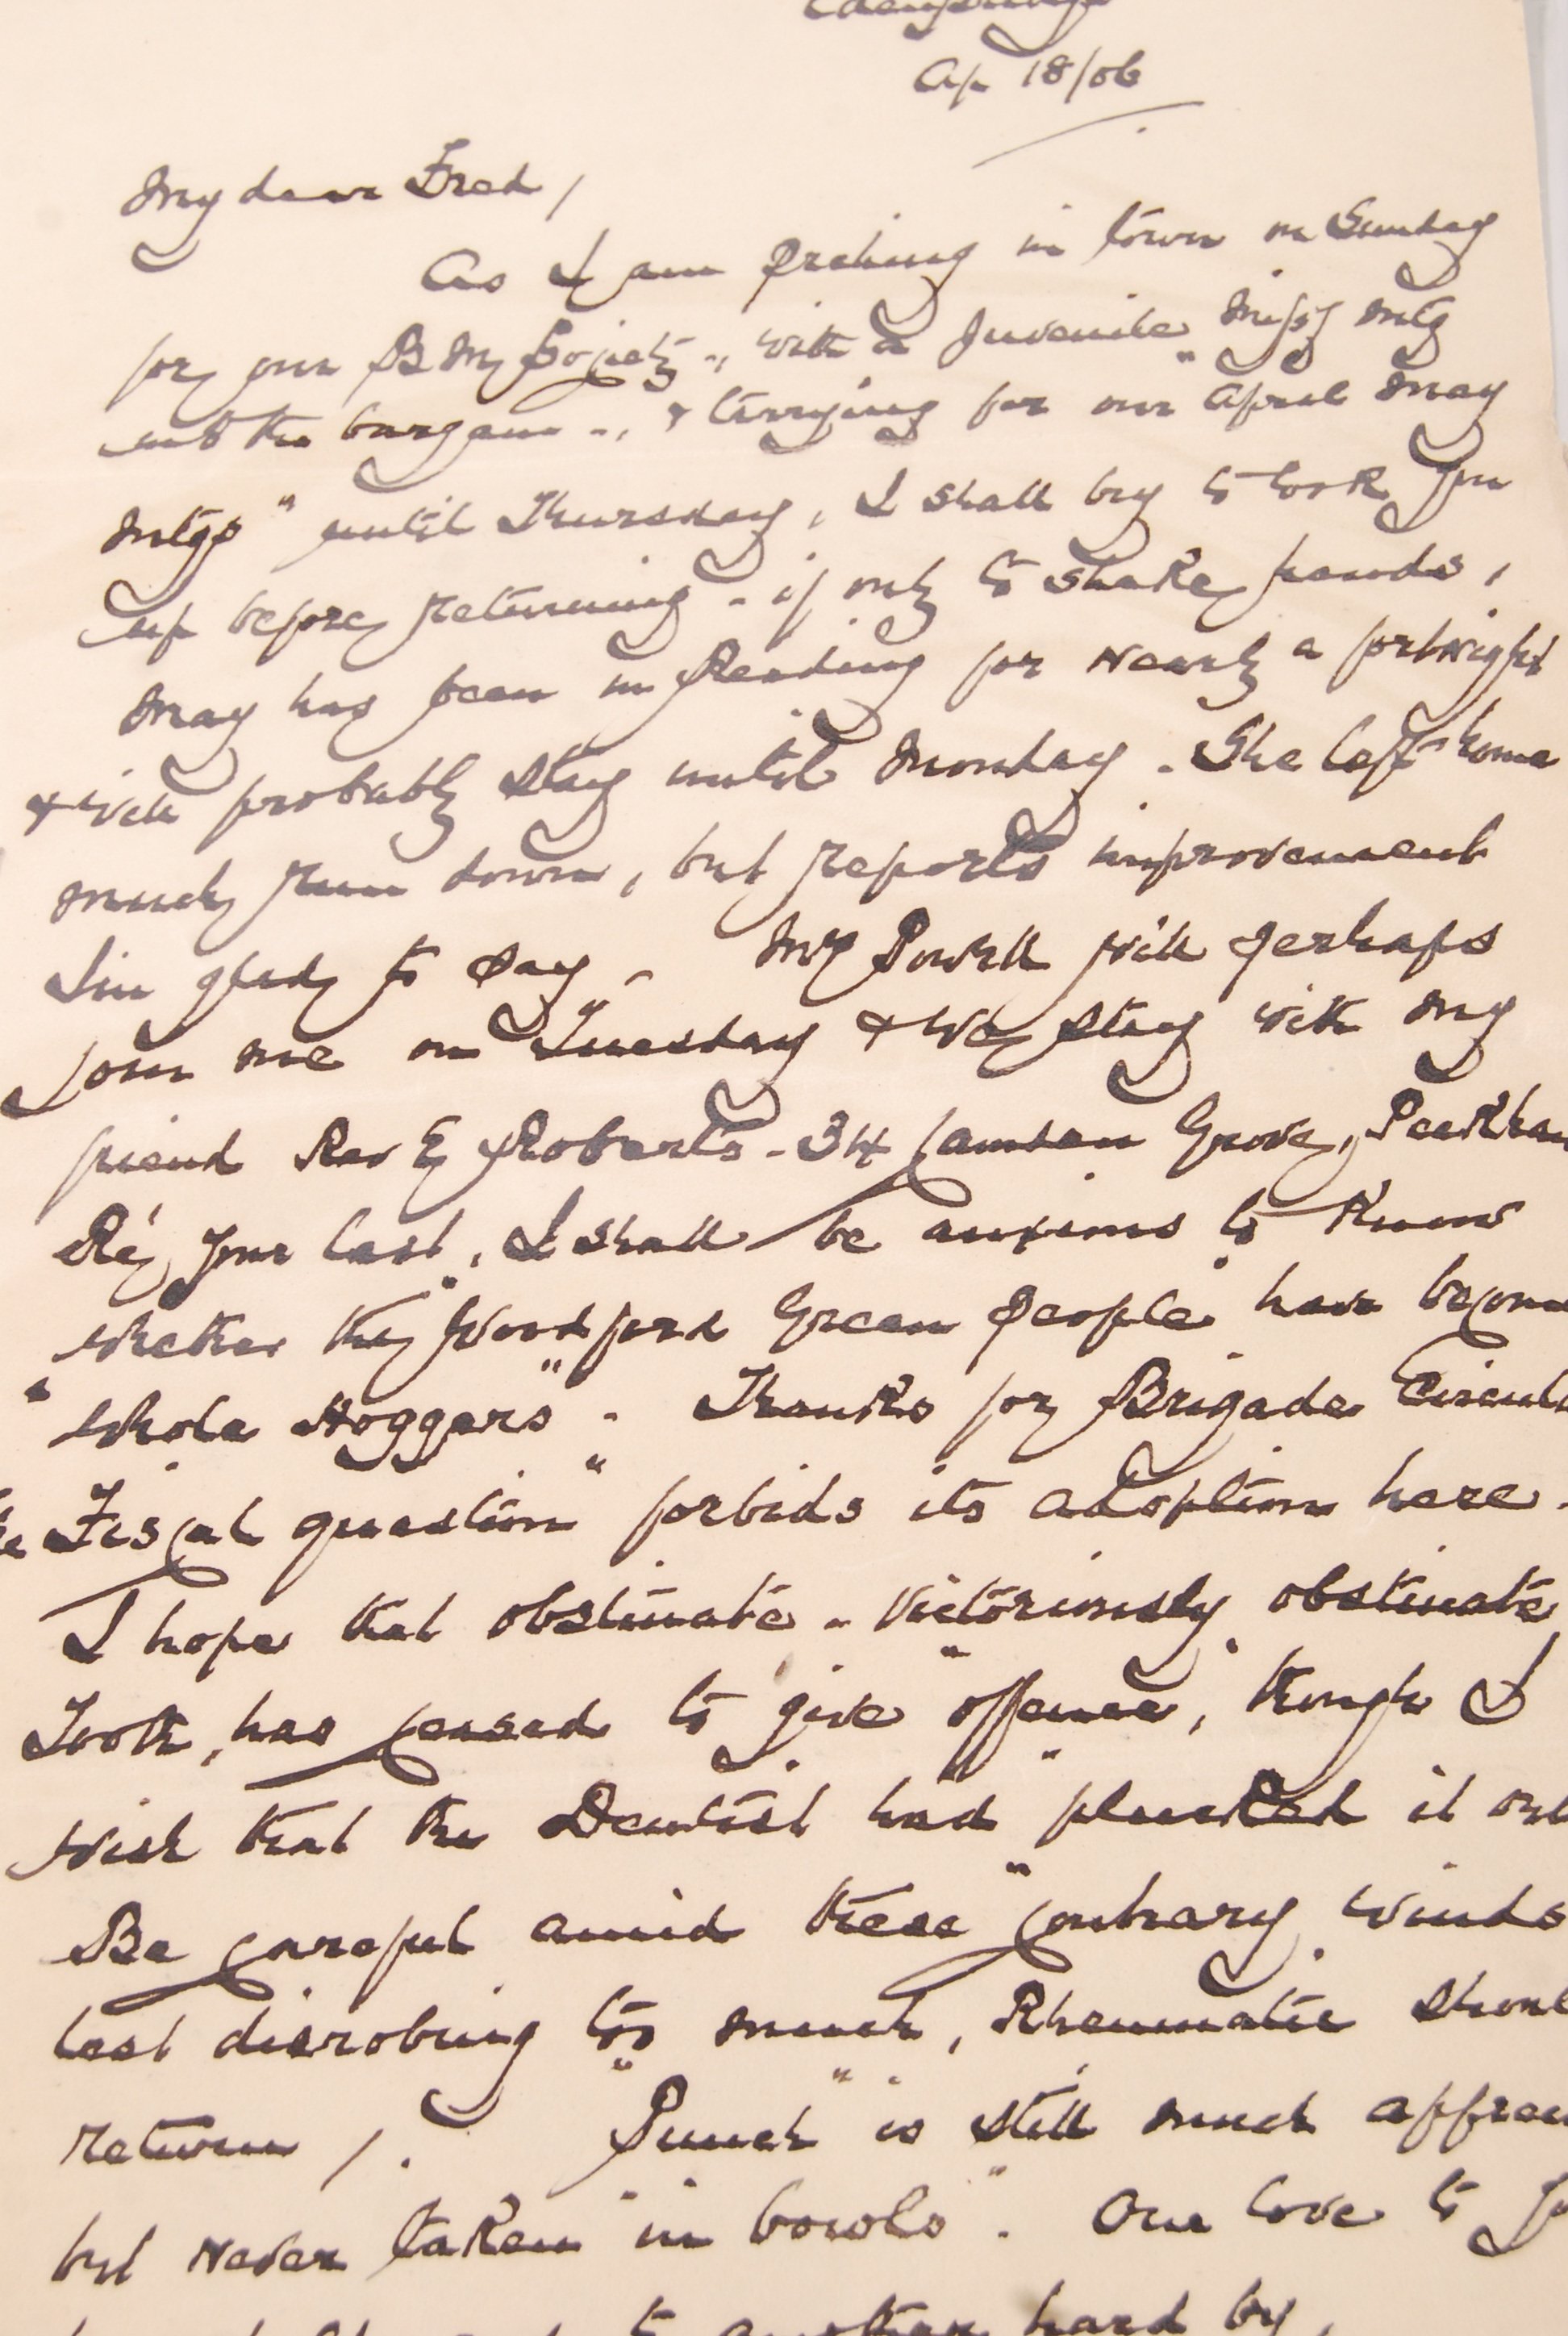 Ap 18/06
My dear Fred,
As I am preching in town on Sunday
for our B M Society -, with a Juvenile "Missy Mtg
into the bargain -, & tarrying for our "April May
Mtgs" until Thursday, I shall try to look you
up before returning - if only to shake hands,
May has been in Reading for nearly a fortnight
& will probably stay until Monday. She left home
much run down, but reports improvement
I'm glad to say - Mrs Powell will perhaps
join me on Tuesday & we stay with my
friend Rev E Roberts - 34 Camden Grove, Peckham
Re your last, I shall be anxious to know
whether the "Woodford Green people" have become
"Whole Hoggers". Thanks for Brigade
The "Fiscal question" forbids its adoption here.
I hope that obstinate - victoriously obstinate
Tooth, has ceased to give "offence", though I
wish that the Dentist had "plucked it out
Be careful amid these "contrary winds
lest disrobing too much, "Rheumatic"
return!. "Punch" is still much
but never "taken in bowls". Our love to
to another hard by,